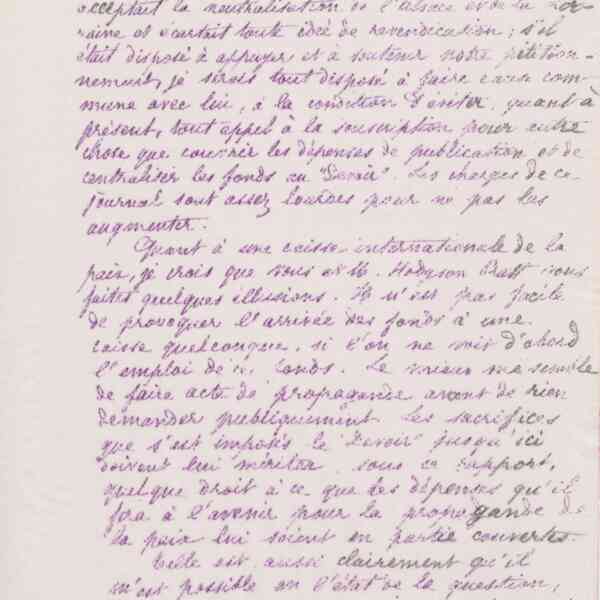 acceptait la neutralisation de l'Alsace et de la Lor-
raine et écartait toute idée de revendication ; s'il
était disposé à appuyer et à soutenir notre pétition-
nement, je serais tout disposé à faire cause com-
mune avec lui, à la condition d'éviter, quant à
présent, tout appel à la souscription pour autre
chose que couvrir les dépenses de publication et de
centraliser les fonds au "Devoir". Les charges de ce
journal sont assez lourdes pour ne pas les
augmenter.
Quant à une caisse internationale de la
paix, je crois que vous et M. Hodgson Pratt vous
faites quelques illusions. Il n'est pas facile
de provoquer l'arrivée des fonds à une
caisse quelconque, si l'on ne voit d'abord
l'emploi de ces fonds. Le mieux me semble
de faire acte de propagande avant de rien
demander publiquement. Les sacrifices
que s'est imposés le "Devoir" jusqu'ici
doivent lui mériter, sous ce rapport,
quelque droit à ce que les dépenses qu'il
fera à l'avenir pour la propagande de
la paix lui soient en partie couvertes.
Telle est aussi clairement qu'il
m'est possible en l'état de la question,